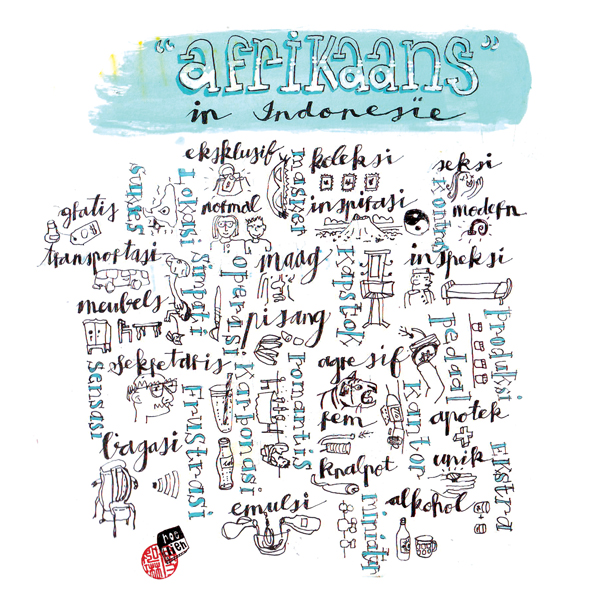 "afrikaans"
in Indonesië
eksklusif
koleksi
seksi
masker
sukses
Lokasi
kontra
gratis
normal
inspirasi
modern
transportasi
Simpati
operasi
maag
Kapstok
inspeksi
meubels
pisang
produksi
pedaal
sekretaris
agresif
Sensasi
Frustrasi
Karbonasi
romantis
rem
Kantor
apotek
bagasi
knalpot
unik
Ekstra
emulsi
miniatur
alkohol